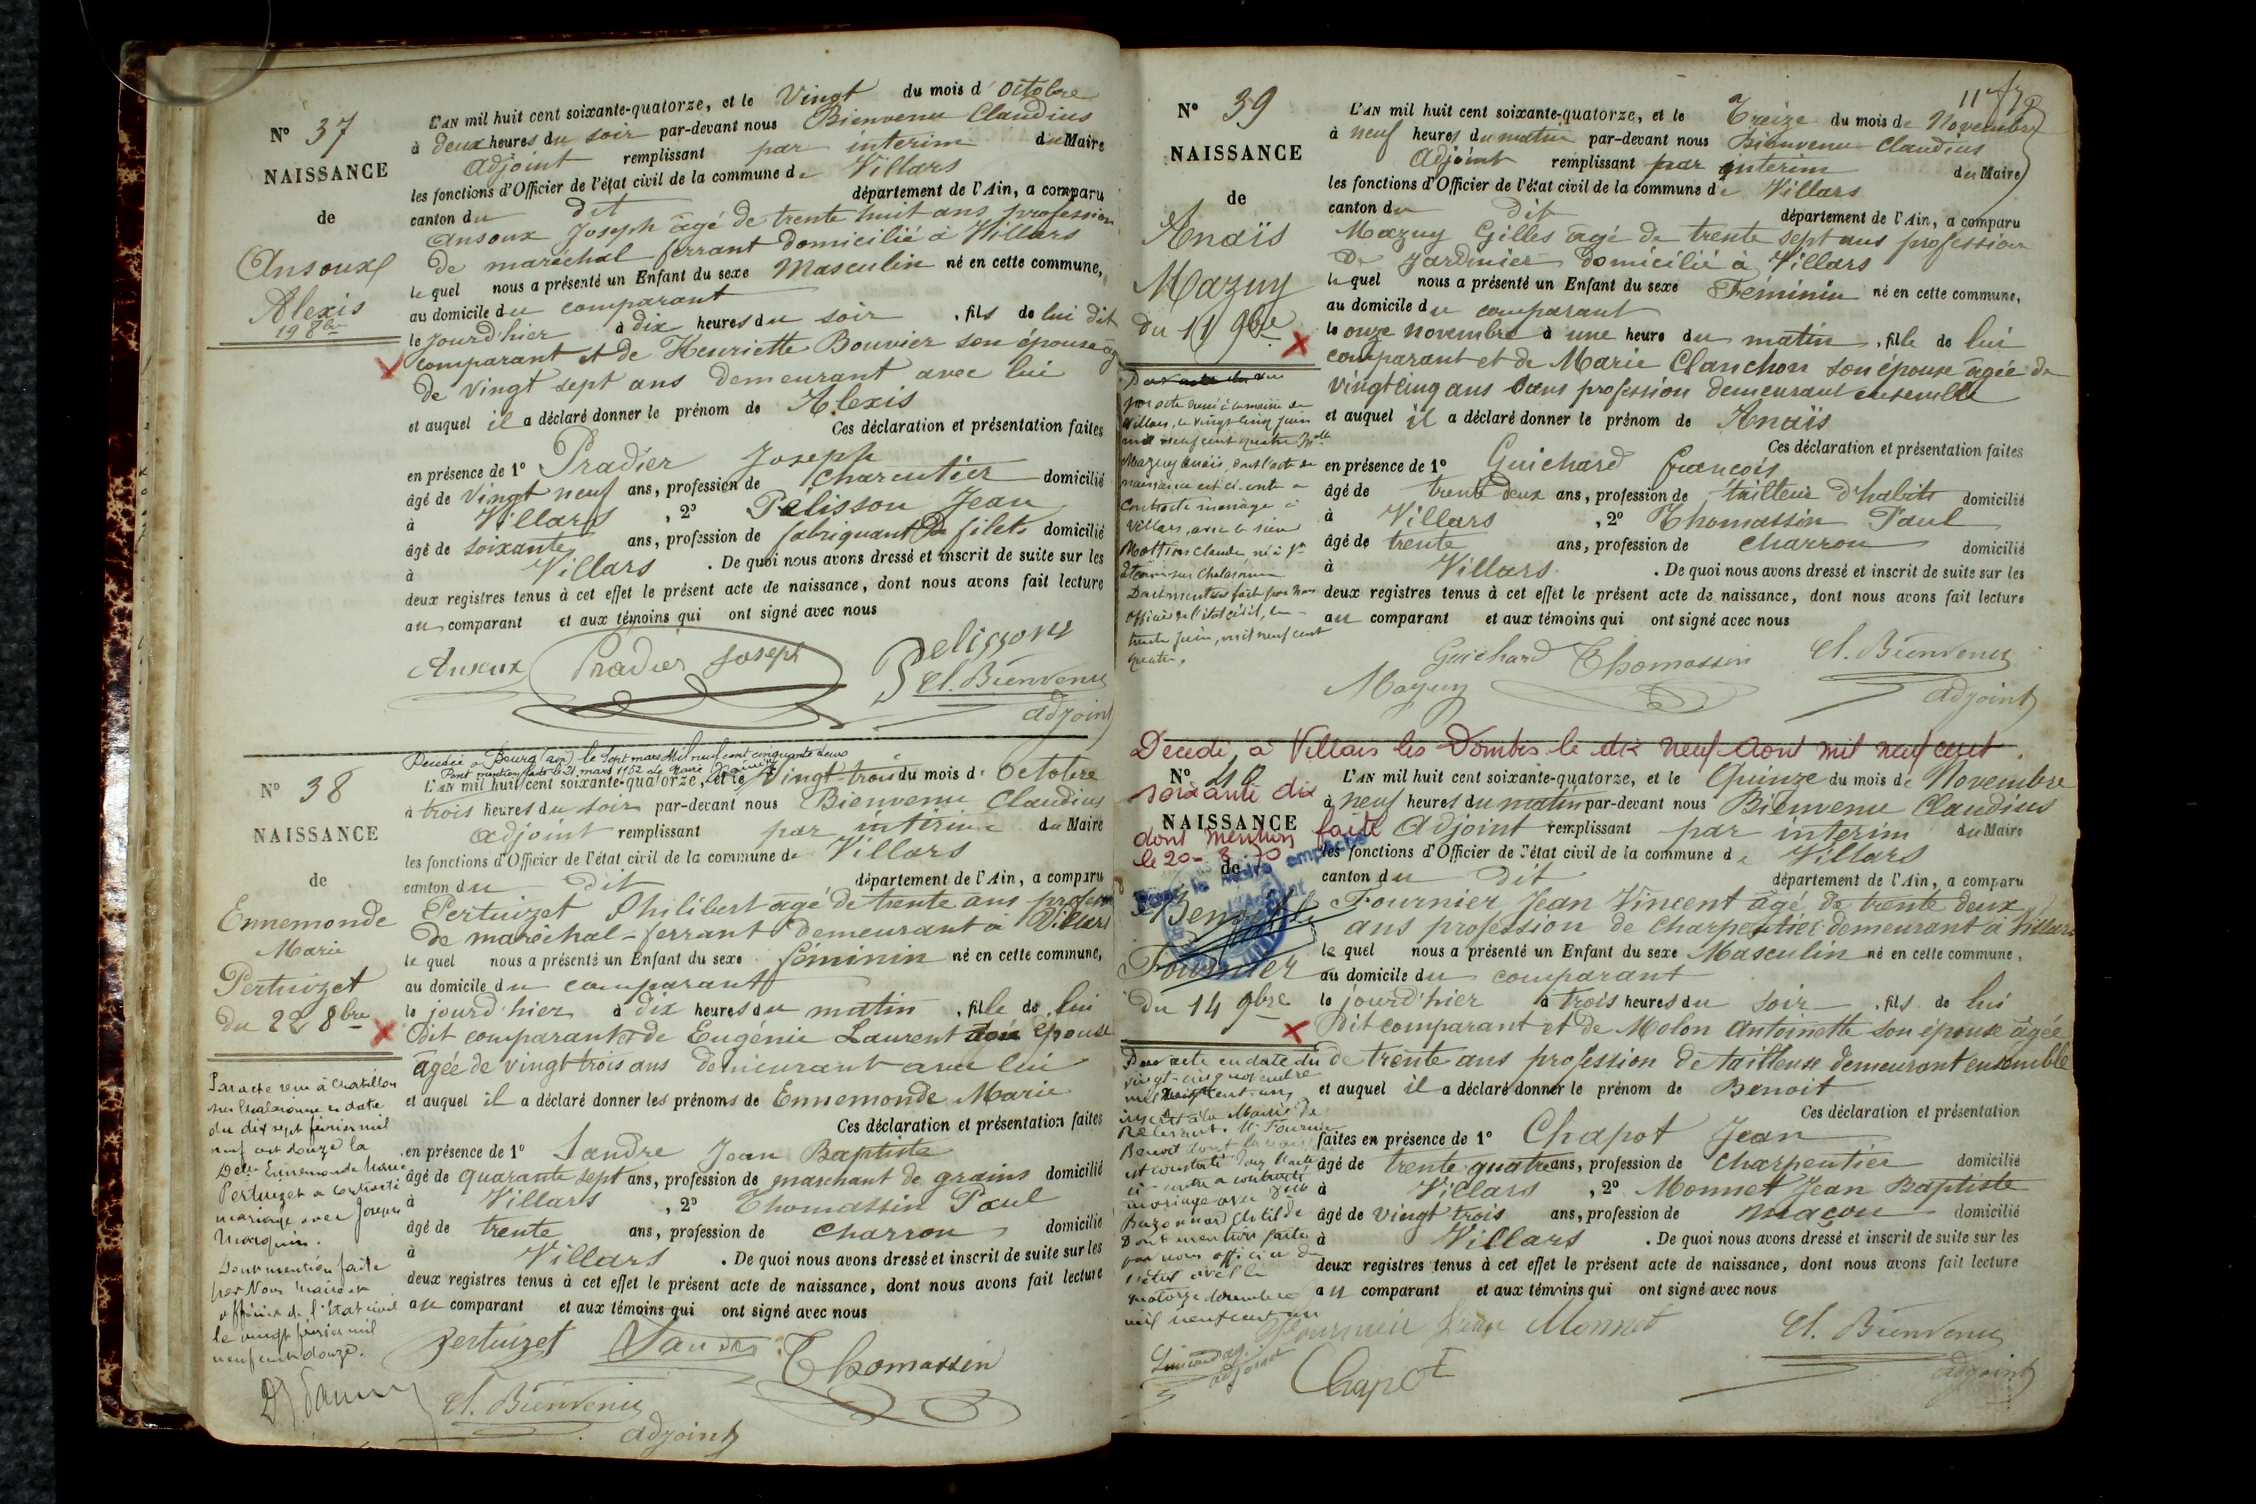 N° 37
NAISSANCE
de
Ansoux
Alexis
19 8bre
L'AN mil huit cent soixante-quatorze, et le Vingt du mois d'Octobre
à deux heures du soir par-devant nous Bienvenu Claudius
Adjoint remplissant par interim du Maire
les fonctions d'Officier de l'état civil de la commune de Villars
canton du dit département de l'Ain, a comparu
Ansoux Joseph âgé de trente huit ans profession
de maréchal ferrant domicilié à Villars
lequel nous a présenté un Enfant du sexe Masculin né en cette commune,
au domicile du comparant
le jourd'hier à dix heures du soir, fils de lui dit
comparant et de Henriette Bouvier son épouse âg
de vingt sept ans demeurant avec lui
et auquel il a déclaré donner le prénom de Alexis
Ces déclaration et présentation faites
en présence de 1° Pradier Joseph
âgé de Vingt neuf ans, profession de Charcutier domicilié
à Villars, 2° Pélisson Jean
âgé de soixante ans, profession de fabriquant de filets domicilié
à Villars. De quoi nous avons dressé et inscrit de suite sur les
deux registres tenus à cet effet le présent acte de naissance, dont nous avons fait lecture
au comparant et aux témoins qui ont signé avec nous
Ansoux Pradier Joseph Pelisson
Cl. Bienvenu
adjoint
Decedée à Bourg (Ain) le Sept mars Mil neuf cent cinquante deux
Dont mention faite le 21 mars 1952 Le Maire
N° 38
NAISSANCE
de
Ennemonde
Marie
Pertuizet
du 22 8bre
L'AN mil huit cent soixante-quatorze, et le Vingt-trois du mois d'Octobre
à trois heures du soir par-devant nous Bienvenu Claudius
adjoint remplissant par interim du Maire
les fonctions d'Officier de l'état civil de la commune de Villars
canton du dit département de l'Ain, a comparu
Pertuizet Philibert âgé de trente ans profession
de maréchal-ferrant demeurant à Villars
lequel nous a présenté un Enfant du sexe féminin né en cette commune,
au domicile du comparant
le jourd'hier à dix heures du matin, fille de lui
dit comparant et de Eugénie Laurent son épouse
âgée de vingt trois ans demeurant avec lui
et auquel il a déclaré donner les prénoms de Ennemonde Marie
Ces déclaration et présentation faites
en présence de 1° Sandre Jean Baptiste
âgé de quarante sept ans, profession de marchant de grains domicilié
à Villars, 2° Thomassin Paul
âgé de trente ans, profession de charron domicilié
à Villars. De quoi nous avons dressé et inscrit de suite sur les
deux registres tenus à cet effet le présent acte de naissance, dont nous avons fait lecture
au comparant et aux témoins qui ont signé avec nous
Par acte reçu à Chatillon
sur Chalaronne en date
du dix sept février mil
neuf cent douze la
Delle Ennemonde Marie
Pertuizet a contracté
mariage avec Joseph
Marguin.
Dont mention faite
par Nous Maire
officier de l'état civil
le vingt février mil
neuf cent douze.
Pertuizet Sandre Thomassin
Cl. Bienvenu
adjoint
N° 39
NAISSANCE
de
Anaïs
Mazuy
du 11 9bre
L'AN mil huit cent soixante-quatorze, et le Treize du mois de Novembre
à neuf heures du matin par-devant nous Bienvenu Claudius
Adjoint remplissant par interim du Maire
les fonctions d'Officier de l'état civil de la commune de Villars
canton du dit département de l'Ain, a comparu
Mazuy Gilles âgé de trente sept ans profession
de Jardinier domicilié à Villars
lequel nous a présenté un Enfant du sexe Féminin né en cette commune,
au domicile du comparant
le onze novembre à une heure du matin, fille de lui
comparant et de Marie Clanchon son épouse âgée de
vingt cinq ans sans profession demeurant ensemble
et auquel il a déclaré donner le prénom de Anaïs
Ces déclaration et présentation faites
en présence de 1° Guichard François
âgé de trente deux ans, profession de tailleur d'habits domicilié
à Villars, 2° Thomassin Paul
âgé de trente ans, profession de charron domicilié
à Villars. De quoi nous avons dressé et inscrit de suite sur les
deux registres tenus à cet effet le présent acte de naissance, dont nous avons fait lecture
au comparant et aux témoins qui ont signé avec nous
par acte dressé à la mairie de
Villars, le vingt-cinq juin
mil neuf cent quatre Melle
Mazuy Anaïs, dont l'acte de
naissance est ci-contre a
contracté mariage à
Villars, avec le sieur
Claude né à St
Etienne sur Chalaronne
Dont mention faite par nous
officier de l'état civil, le
trente juin, mil neuf cent
quatre.
Guichard Thomassin Cl. Bienvenu
Mazuy adjoint
Décédé, à Villars les Dombes le dix neuf Août mil neuf cent
soixante dix
dont mention faite
le 20-8-70
N° 40
NAISSANCE
de
Benoit
Fournier
du 14 9bre
L'AN mil huit cent soixante-quatorze, et le Quinze du mois de Novembre
à neuf heures du matin par-devant nous Bienvenu Claudius
Adjoint remplissant par interim du Maire
les fonctions d'Officier de l'état civil de la commune de Villars
canton du Dit département de l'Ain, a comparu
Fournier Jean Vincent âgé de trente deux
ans profession de Charpentier demeurant à Villars
lequel nous a présenté un Enfant du sexe Masculin né en cette commune,
au domicile du comparant
le jourd'hier à trois heures du soir, fils de lui
Dit comparant et de Molon Antoinette son épouse âgée
de trente ans profession de tailleuse demeurant ensemble
et auquel il a déclaré donner le prénom de Benoit
Ces déclaration et présentation
faites en présence de 1° Chapot Jean
âgé de trente quatre ans, profession de charpentier domicilié
à Villars, 2° Monnet Jean Baptiste
âgé de vingt trois ans, profession de maçon domicilié
à Villars. De quoi nous avons dressé et inscrit de suite sur les
deux registres tenus à cet effet le présent acte de naissance, dont nous avons fait lecture
au comparant et aux témoins qui ont signé avec nous
Par acte en date du
vingt-cinq novembre
Benoit dont la naissance
est constatée par l'acte
ci-contre a contracté
mariage avec Delle
Clotilde
Dont mention faite
par nous officier de
l'état civil le
quatorze décembre
mil neuf cent un
adjoint
Fournier Jean Monnet Cl. Bienvenu
Chapot adjoint